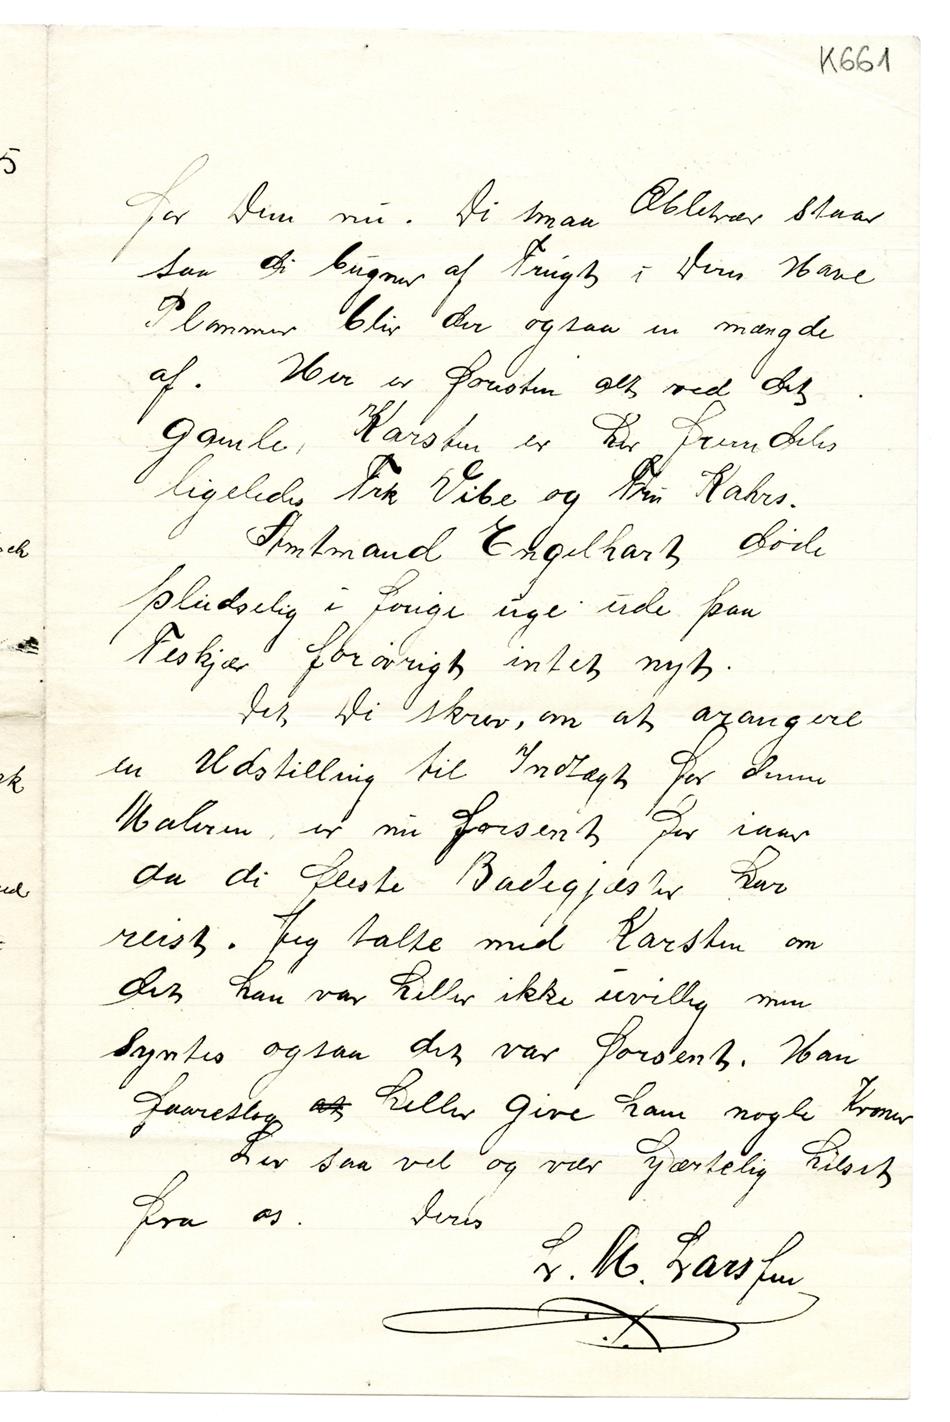 K661
5
for Dem nu. Di smaa Æbletrær staar
saa di bugner af Frugt i Deres Have
Plommer blir der ogsaa en mængde
af. Her er foresten alt ved det
gamle, Karsten er her fremdeles
ligeledes Frk Vibe og Fru Kahrs.
Amtmand Engelhart døde
pludselig i forige uge ude paa
Teskjær forøvrigt intet nyt.
Det Di skrev, om at arangere
en Udstilling til Indtægt for denne
Maleren, er nu forsent for iaar
da di fleste Badegjæster har
reist. Jeg talte med Karsten om
det han var heller ikke uvillig men
Syntes ogsaa det var forsent. Han
faareslog at heller give ham nogle Kroner
Lev saa vel og vær hjærtelig hilset
fra os. Deres
L. M. Larssen